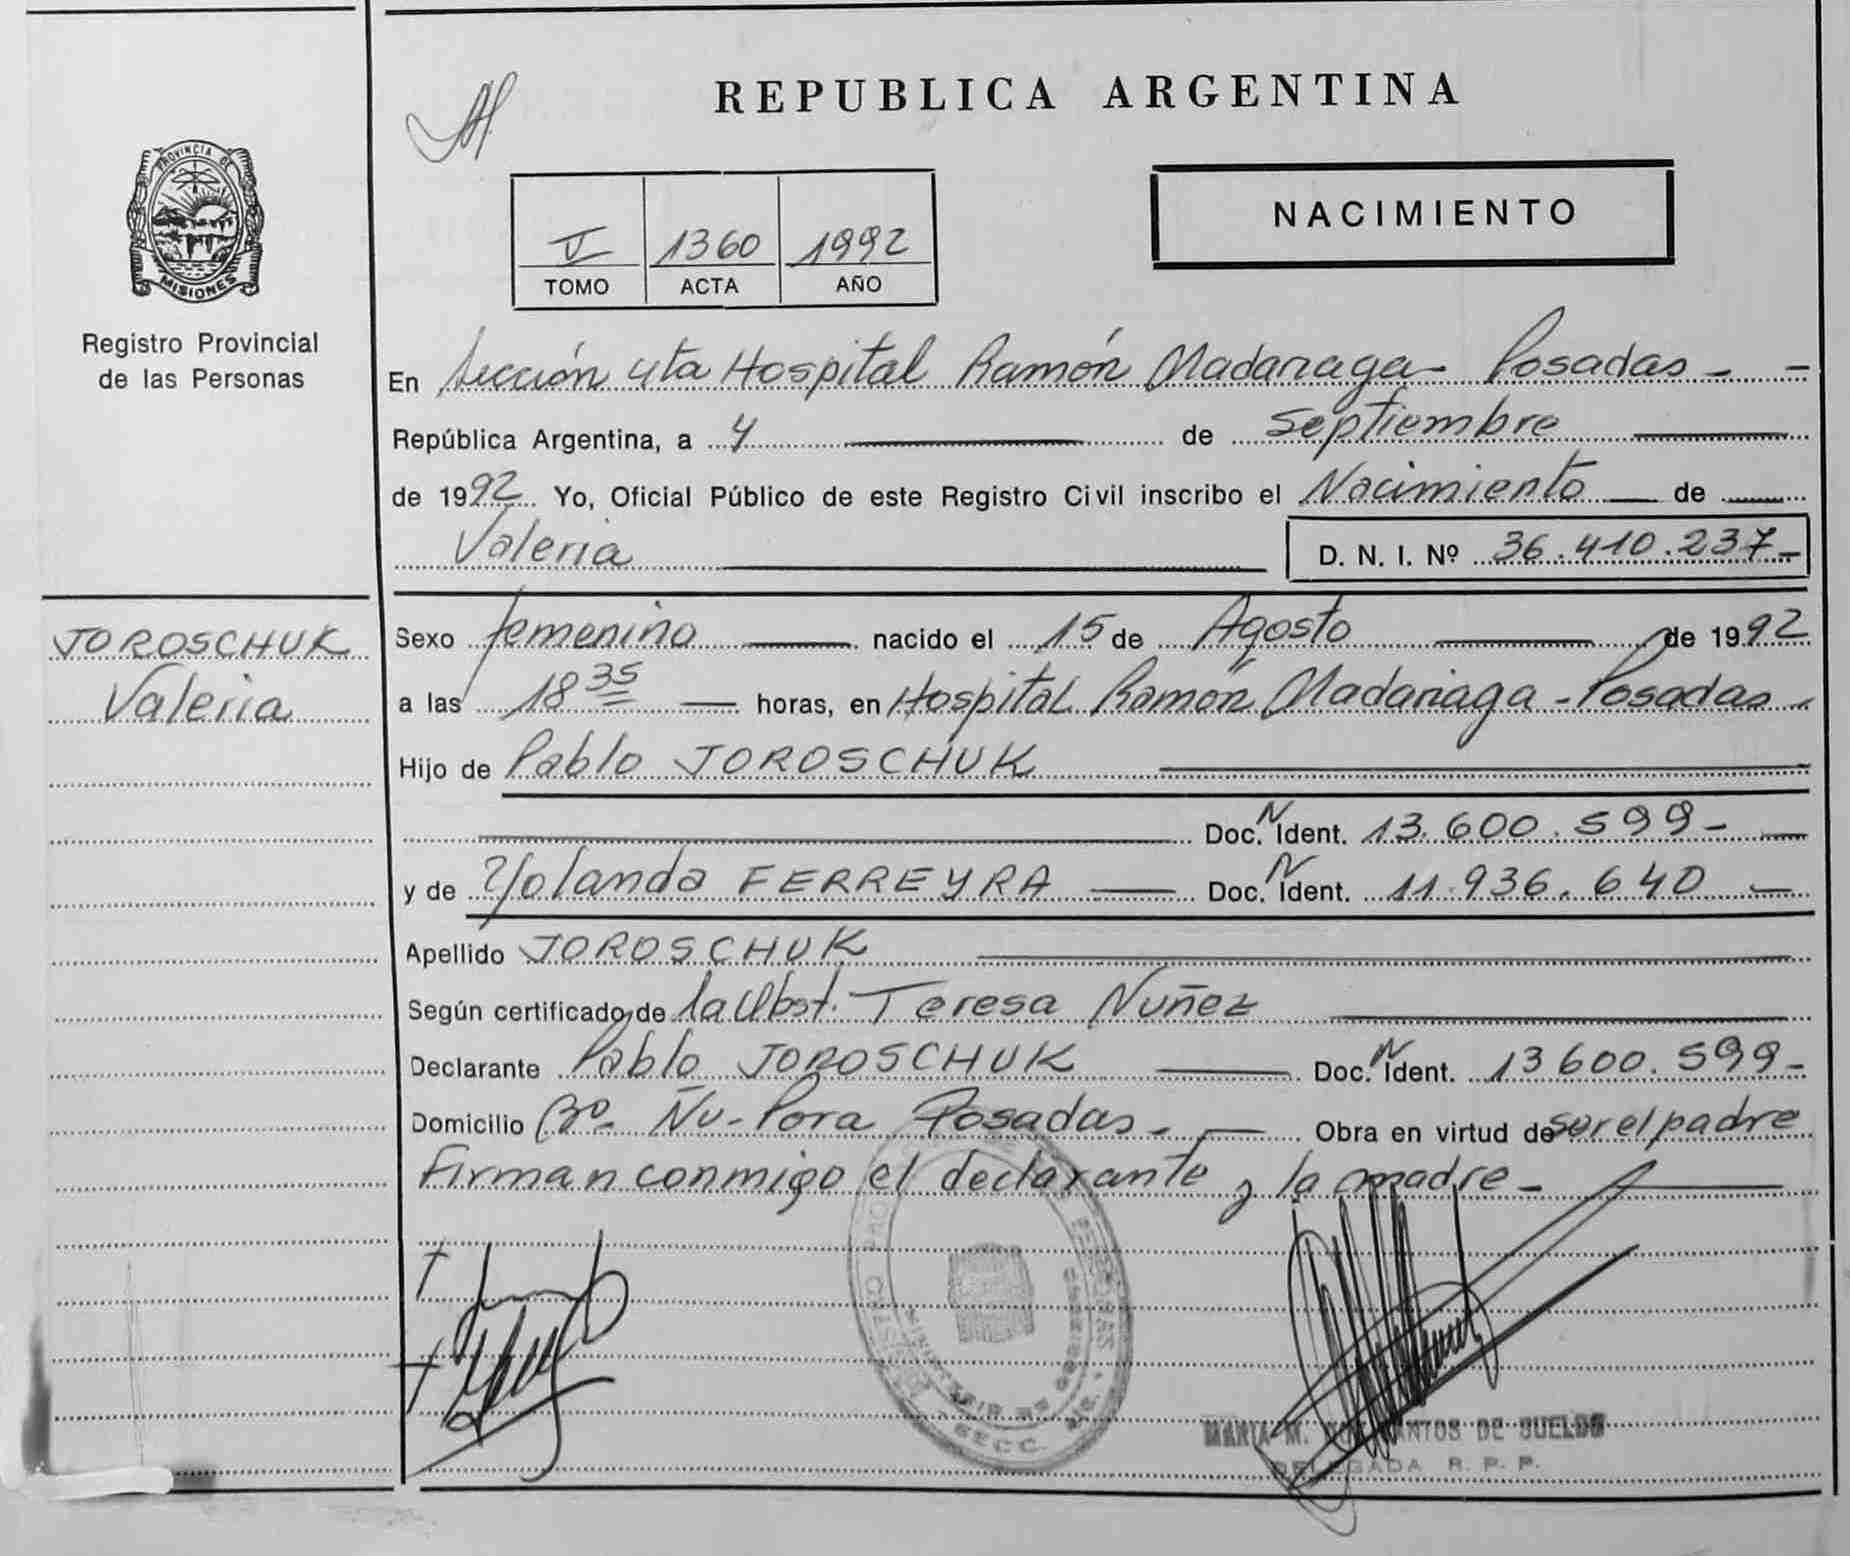 REPUBLICA ARGENTINA
PROVINCIA DE
MISIONES
Registro Provincial
de las Personas
NACIMIENTO
V 1360 1992
TOMO ACTA AÑO
En Sección 4ta Hospital Ramón Madariaga - Posadas - -
República Argentina, a 4 de Septiembre
de 1992 Yo, Oficial Público de este Registro Civil inscribo el Nacimiento de
Valeria D. N. I. Nº 36.410.237-
JOROSCHUK
Valeria
Sexo femenino nacido el 15 de Agosto de 1992
a las 18 35 horas, en Hospital Ramón Madariaga - Posadas -
Hijo de Pablo JOROSCHUK
Doc. N Ident. 13.600.599-
y de Yolanda FERREYRA Doc. N Ident. 11.936.640
Apellido JOROSCHUK
Según certificado de la Obst. Teresa Nuñez
Declarante Pablo JOROSCHUK Doc. N Ident. 13600.599-
Domicilio Bº Ñu-Pora Posadas - Obra en virtud de ser el padre
Firman conmigo el declarante y la madre -
SECC.
MARIA M. SANTOS DE SUELDO
DELEGADA R. P. P.